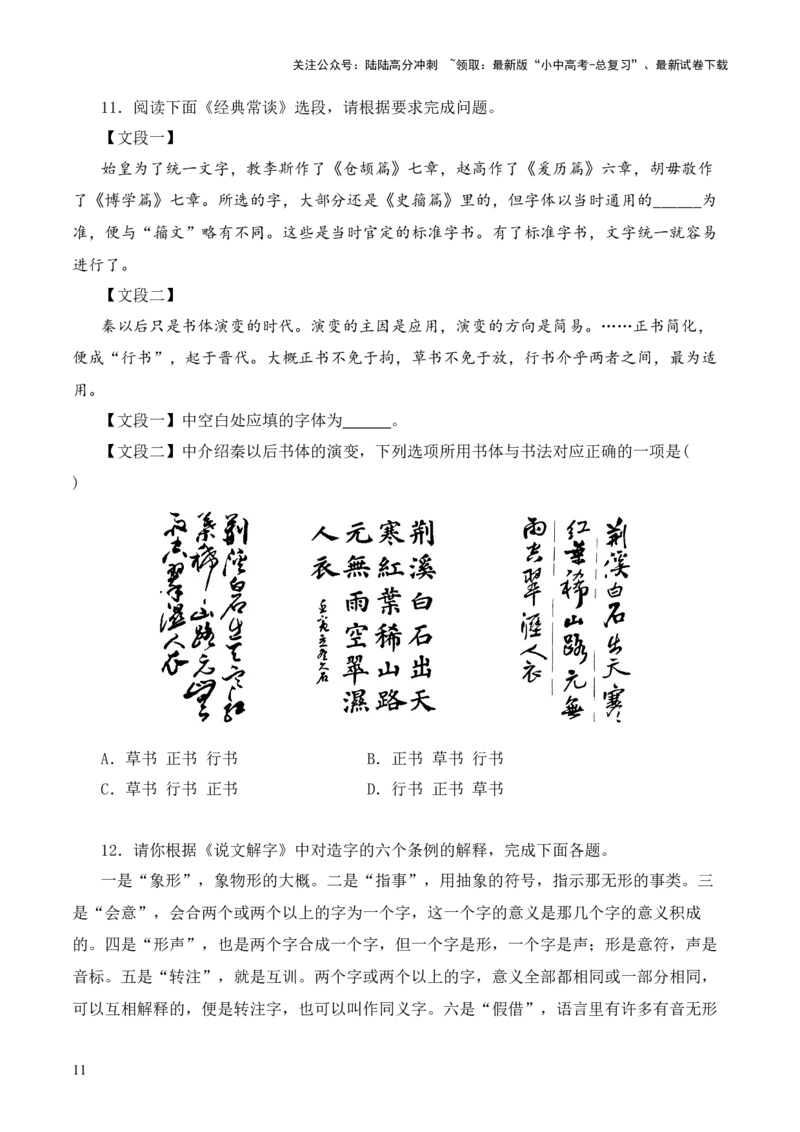 关注公众号：陆陆高分冲刺 ~领取：最新版“小中高考-总复习”、最新试卷下载
11．阅读下面《经典常谈》选段，请根据要求完成问题。
【文段一】
始皇为了统一文字，教李斯作了《仓颉篇》七章，赵高作了《爰历篇》六章，胡毋敬作
了《博学篇》七章。所选的字，大部分还是《史籀篇》里的，但字体以当时通用的______为
准，便与“籀文”略有不同。这些是当时官定的标准字书。有了标准字书，文字统一就容易
进行了。
【文段二】
秦以后只是书体演变的时代。演变的主因是应用，演变的方向是简易。……正书简化，
便成“行书”，起于晋代。大概正书不免于拘，草书不免于放，行书介乎两者之间，最为适
用。
【文段一】中空白处应填的字体为______。
【文段二】中介绍秦以后书体的演变，下列选项所用书体与书法对应正确的一项是(
)
荆溪白石出天寒红
葉稀山路元無
雨空翠濕人衣
荆溪白石出天
寒紅葉稀山路
元無雨空翠濕
人衣
荆溪白石出天寒
红葉稀山路元無
雨空翠濕人衣
A．草书 正书 行书
B．正书 草书 行书
C．草书 行书 正书
D．行书 正书 草书
12．请你根据《说文解字》中对造字的六个条例的解释，完成下面各题。
一是“象形”，象物形的大概。二是“指事”，用抽象的符号，指示那无形的事类。三
是“会意”，会合两个或两个以上的字为一个字，这一个字的意义是那几个字的意义积成
的。四是“形声”，也是两个字合成一个字，但一个字是形，一个字是声；形是意符，声是
音标。五是“转注”，就是互训。两个字或两个以上的字，意义全部都相同或一部分相同，
可以互相解释的，便是转注字，也可以叫作同义字。六是“假借”，语言里有许多有音无形
11